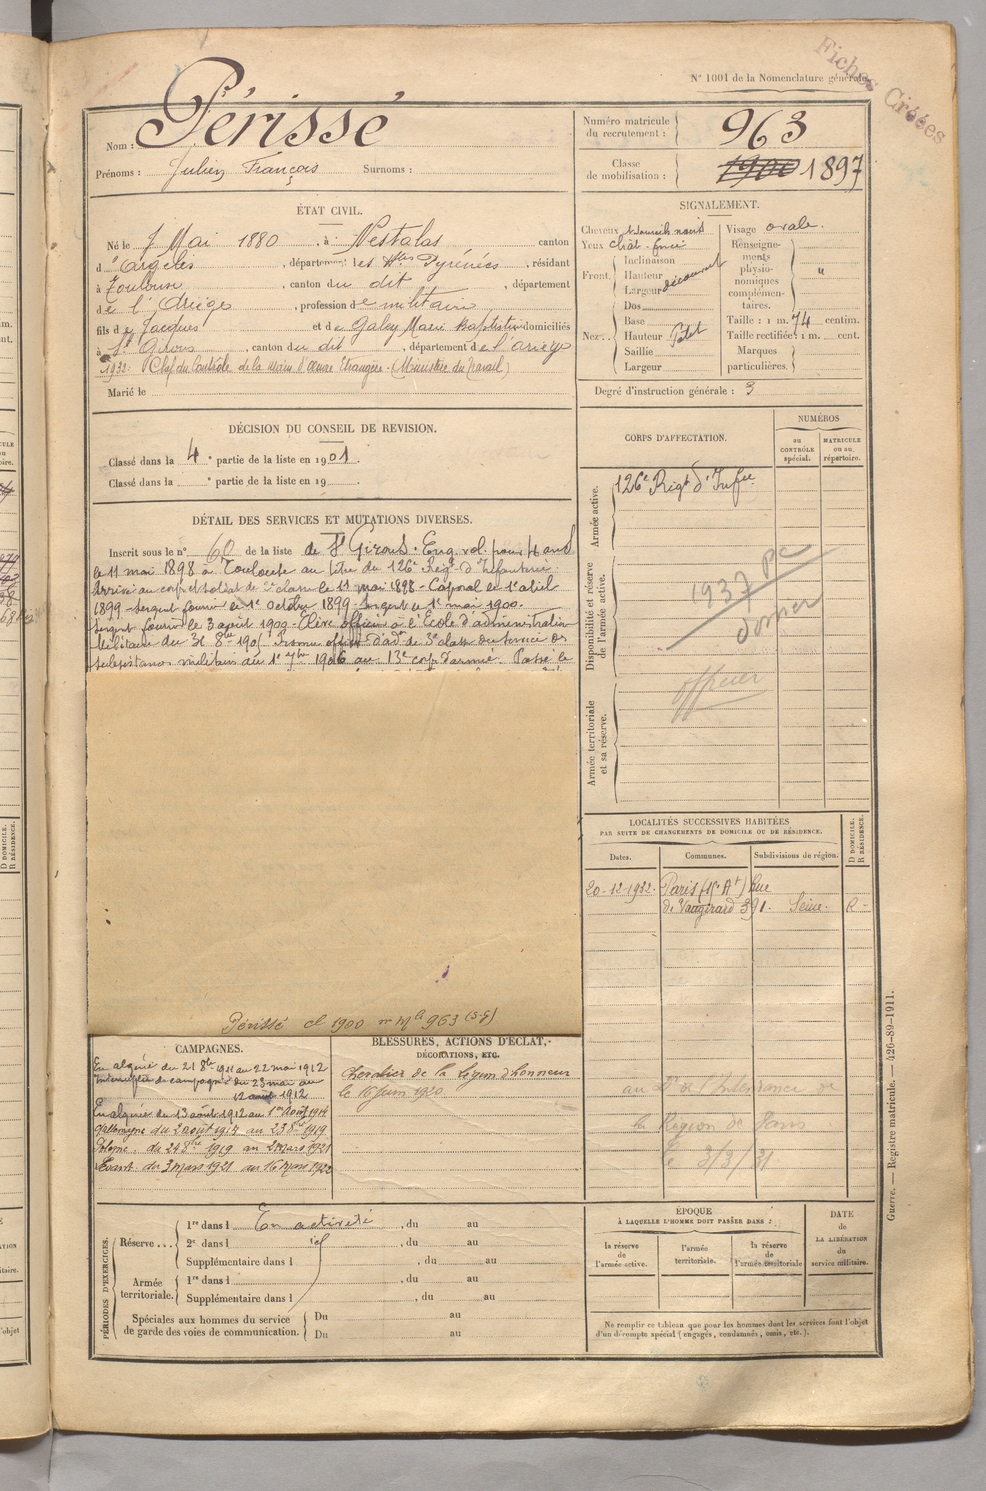 Fiches Créées
N° 1001 de la Nomenclature générale.
Nom : Périssé
Prénoms : Julien François Surnoms :
Numéro matricule du recrutement : 963
Classe de mobilisation : 1900 1897
ÉTAT CIVIL.
Né le 7 Mai 1880, à Nestalas canton
d'Argelès, département des Htes Pyrénées, résidant
à Toulouse, canton du dit, département
de l'Ariège, profession de militaire
fils de Jacques et de Galey Marie Baptistine domiciliés
à St Girons, canton du dit, département de l'ariège
1932: Chef du Contrôle de la Main d'Œuvre Etrangère. (Ministère du Travail)
Marié le
SIGNALEMENT.
Cheveux noirs Visage ovale.
Yeux chât. foncé
Front. Inclinaison
Hauteur découvert
Largeur
Nez. Dos
Base
Hauteur Petit
Saillie
Largeur
Renseignements physionomiques complémentaires. "
Taille : 1 m. 74 centim.
Taille rectifiée : 1 m. cent.
Marques particulières.
Degré d'instruction générale : 3
DÉCISION DU CONSEIL DE REVISION.
Classé dans la 4e partie de la liste en 1901.
Classé dans la e partie de la liste en 19
DÉTAIL DES SERVICES ET MUTATIONS DIVERSES.
Inscrit sous le n° 60 de la liste de St Girons. Eng. vol. pour 4 ans
le 11 mai 1898 à Toulouse au titre du 126e Rég. d'Infanterie.
Arrivé au corps et soldat de 2e classe le 11 mai 1898 - Caporal le 1er avril
1899 - Sergent fourrier le 1er octobre 1899 - Sergent le 1er mai 1900.
Sergent fourrier le 3 août 1900 - Elève officier à l'Ecole d'administration
Militaire du 31 8bre 1905. Promu officier d'adon de 3e classe du service des
subsistances militaires du 1er 7bre 1906 au 13e corps d'armée. Passé le
Périssé cl 1900 n° Mle 963 (S-G)
CORPS D'AFFECTATION.
NUMÉROS
au CONTRÔLE spécial.
MATRICULE ou au répertoire.
Armée active.
126e Régt d'Infie
Disponibilité et réserve de l'armée active.
1937 PC
dossier
officier
Armée territoriale et sa réserve.
LOCALITÉS SUCCESSIVES HABITÉES
PAR SUITE DE CHANGEMENTS DE DOMICILE OU DE RÉSIDENCE.
Dates. Communes. Subdivisions de région. D DOMICILE. R RÉSIDENCE.
20-12-1932. Paris (15e At) Rue
de Vaugirard 391. Seine. R -
au de l'Intendance de
la Région de Paris
le 3/3/31
CAMPAGNES.
En algérie du 21 8bre 1911 au 22 mai 1912
Interruption de campagne du 23 mai au
12 août 1912
En algérie du 13 août 1912 au 1er août 1914
Allemagne du 2 août 1914 au 23 8bre 1919
Pologne. du 24 8bre 1919 au 2 mars 1921
Levant. du 3 mars 1921 au 16 mars 1922
BLESSURES, ACTIONS D'ÉCLAT,
DÉCORATIONS, ETC.
Chevalier de la Légion d'honneur
le 16 Juin 1920
PÉRIODES D'EXERCICES.
Réserve... 1re dans l En activité, du au
2e dans l id, du au
Supplémentaire dans l , du au
Armée territoriale. 1re dans l , du au
Supplémentaire dans l , du au
Spéciales aux hommes du service de garde des voies de communication. Du au
Du au
ÉPOQUE
À LAQUELLE L'HOMME DOIT PASSER DANS :
la réserve de l'armée active.
l'armée territoriale.
la réserve de l'armée territoriale
DATE de LA LIBÉRATION du service militaire.
Ne remplir ce tableau que pour les hommes dont les services font l'objet
d'un décompte spécial (engagés, condamnés, omis, etc.).
Guerre. — Registre matricule. — 426-89-1911.